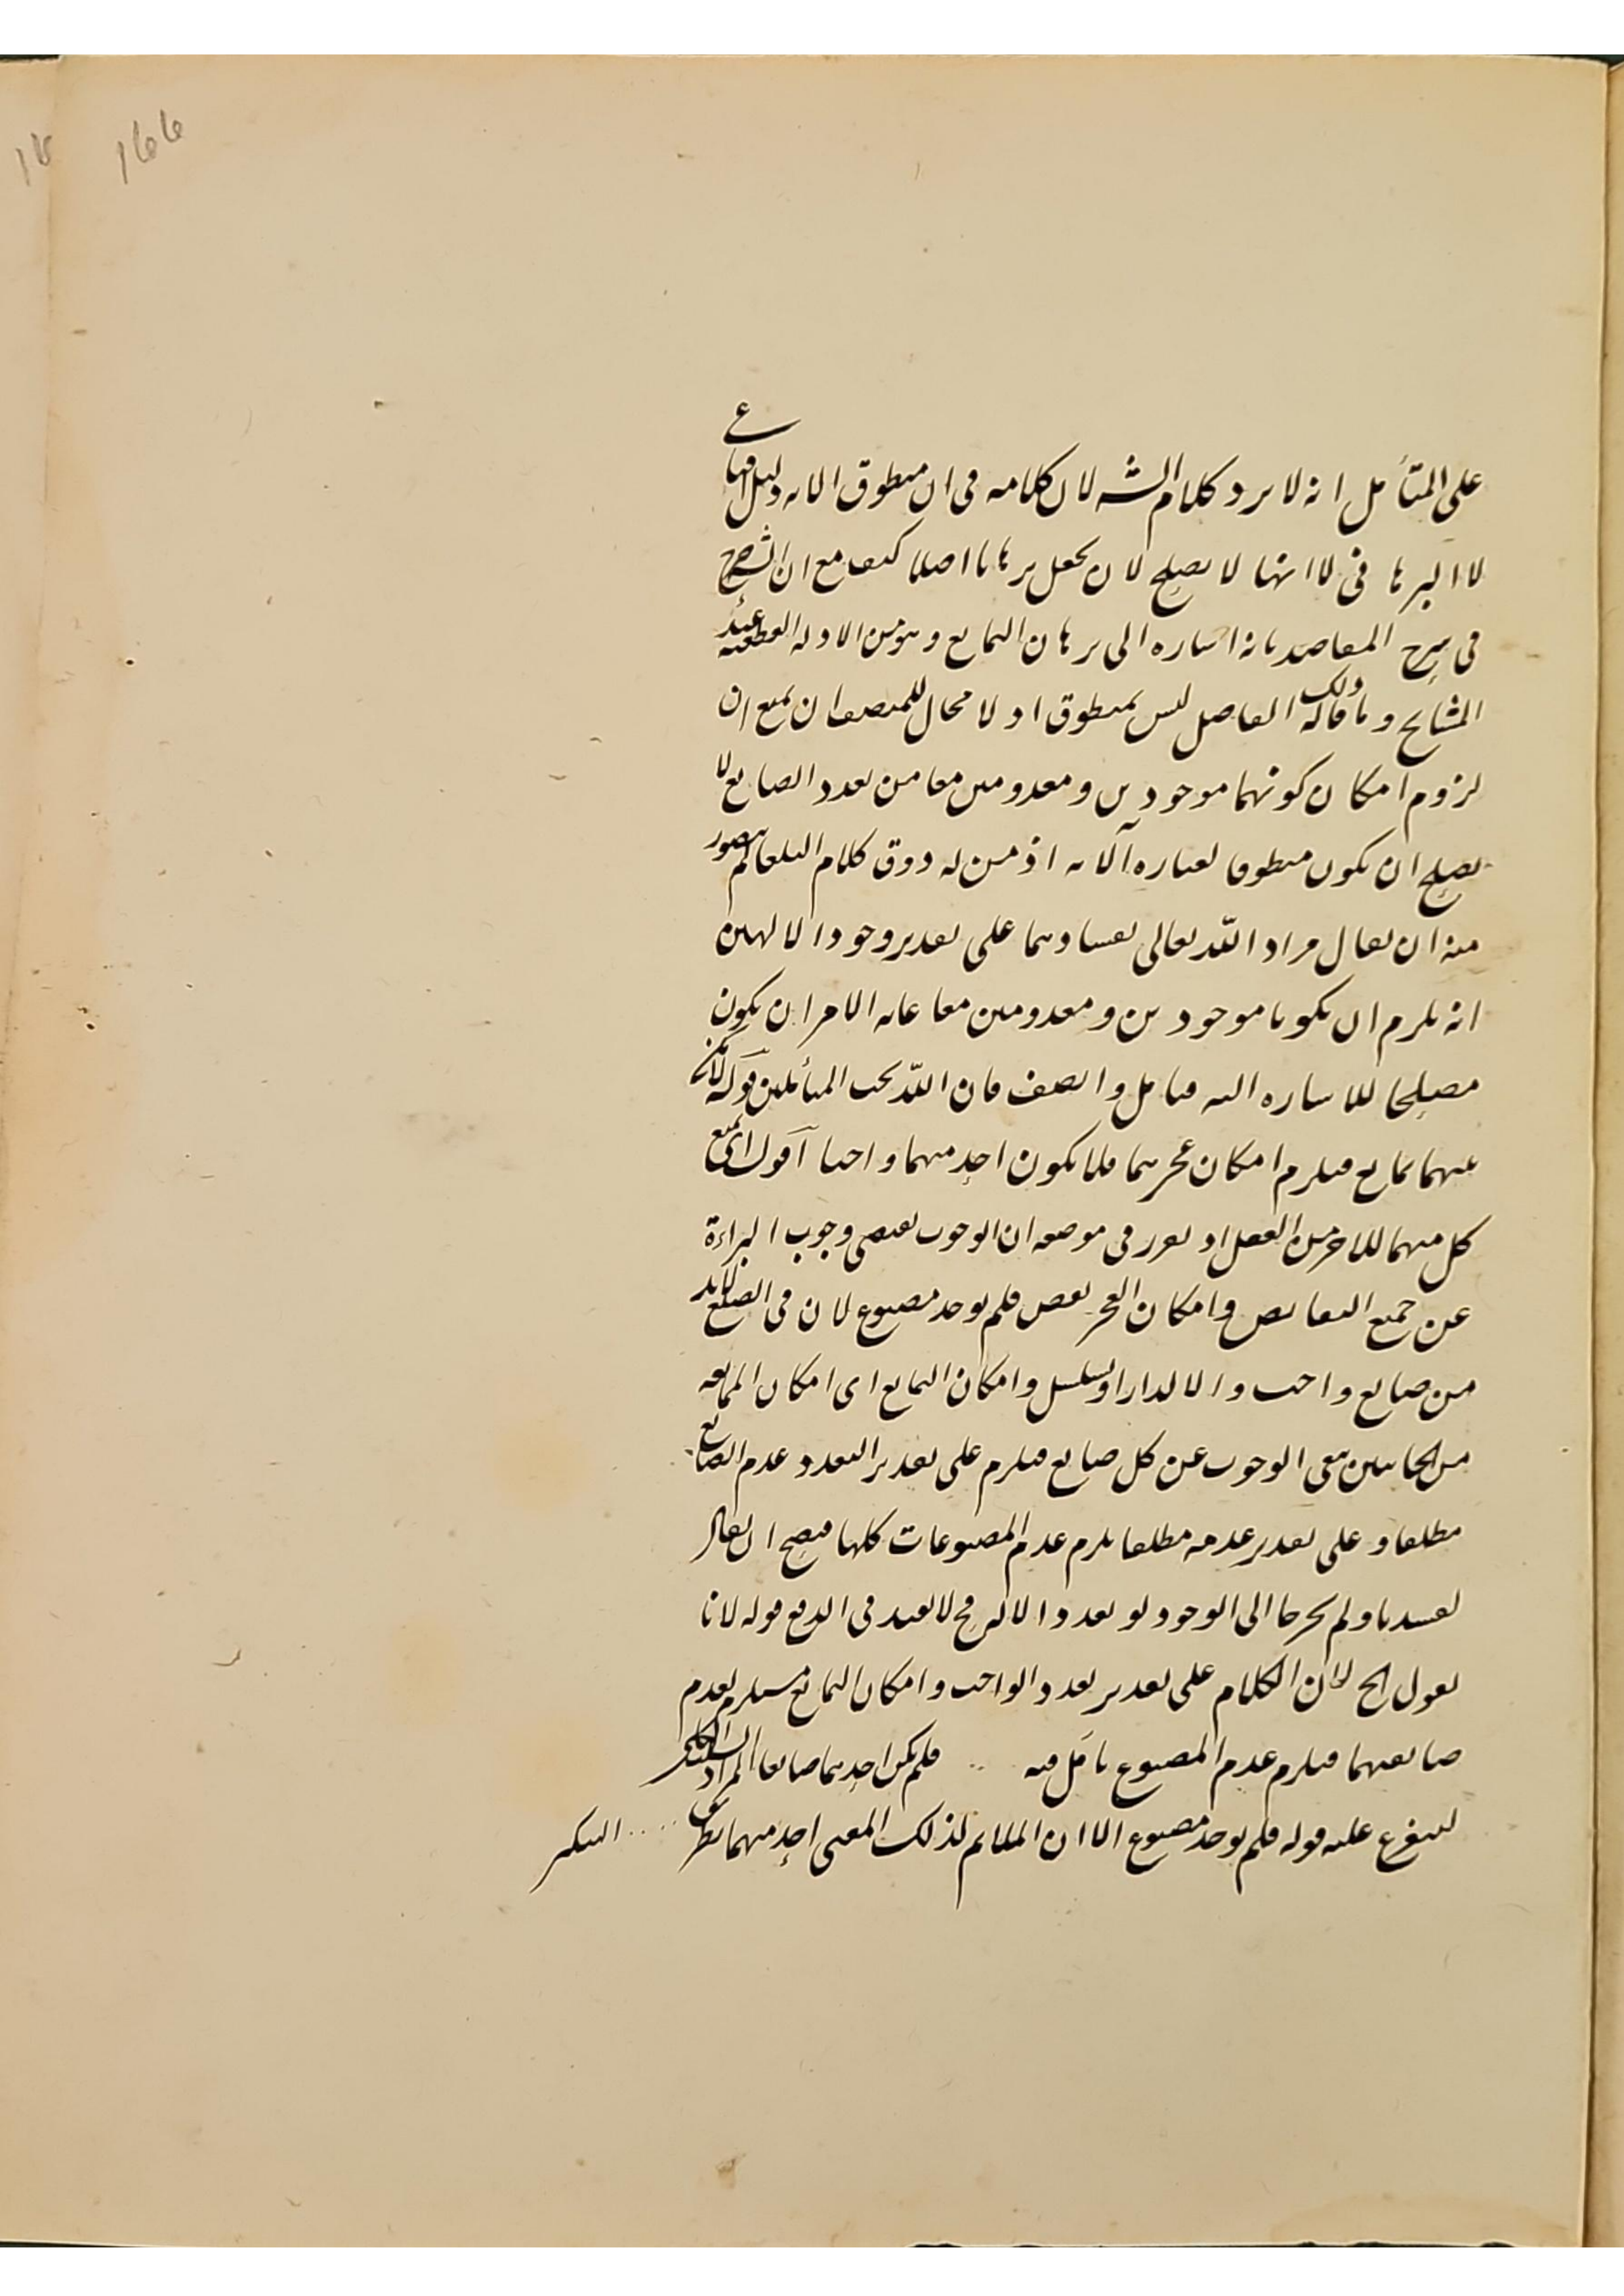 على المتأمل انه لا يرد كلام الشه لان كلامه فى ان منطوق الايه دليل اقناعى
لا البرهانى لا انها لا يصلح لان يجعل برهانا اصلا كيف مع ان الشه صرح
فى شرح المقاصد بانه اشاره الى برهان التمانع وهو من الادله القطعيه عند
المشايخ وما قاله ذلك الفاضل ليس بمنطوق اذ لا مجال للمنصف ان يمنع ان
لزوم امكان كونهما موجودين ومعدومين معا من تعدد الصانع لا
يصلح ان يكون منطوقا لعباره الآيه اذ من له ذوق كلام البلغا لم يتصور
منه ان يقال مراد الله تعالى بفسادهما على تقدير وجود الالهين
انه يلزم ان يكونا موجودين ومعدومين معا غايه الامر ان يكون
مصلحا للاشاره اليه فتامل وانصف فان الله يحب المتأملين قوله لامكن
بينهما تمانع فيلزم امكان عجزهما فلا يكون احد منهما واجبا آقول اى يمنع
كل منهما للاخر من الفعل اذ تقرر فى موضعه ان الوجوب يقتضى وجوب البراءة
عن جميع النقايص وامكان العجز نقص فلم يوجد مصنوع لان فى الصنع لابد
من صانع واجب والا لدار او تسلسل وامكان التمانع اى امكان الممانعه
من الجانبين ينفى الوجوب عن كل صانع فيلزم على تقدير التعدد عدم الصانع
مطلقا وعلى تقدير عدمه مطلقا يلزم عدم المصنوعات كلها فيصح ان يقال
لفسدتا ولم يخرجا الى الوجود لو تعدد الاله فح لا يفيد فى الدفع قوله لانا
نقول الخ لان الكلام على تقدير تعدد الواجب وامكان التمانع مستلزم لعدم
صانعيهما فيلزم عدم المصنوع تامل فيه فلم يكن احدهما صانعا المراد السلب الكلى
ليتفرع عليه قوله فلم يوجد مصنوع الا ان الملايم لذلك المعنى احد منهما بطريق التنكير